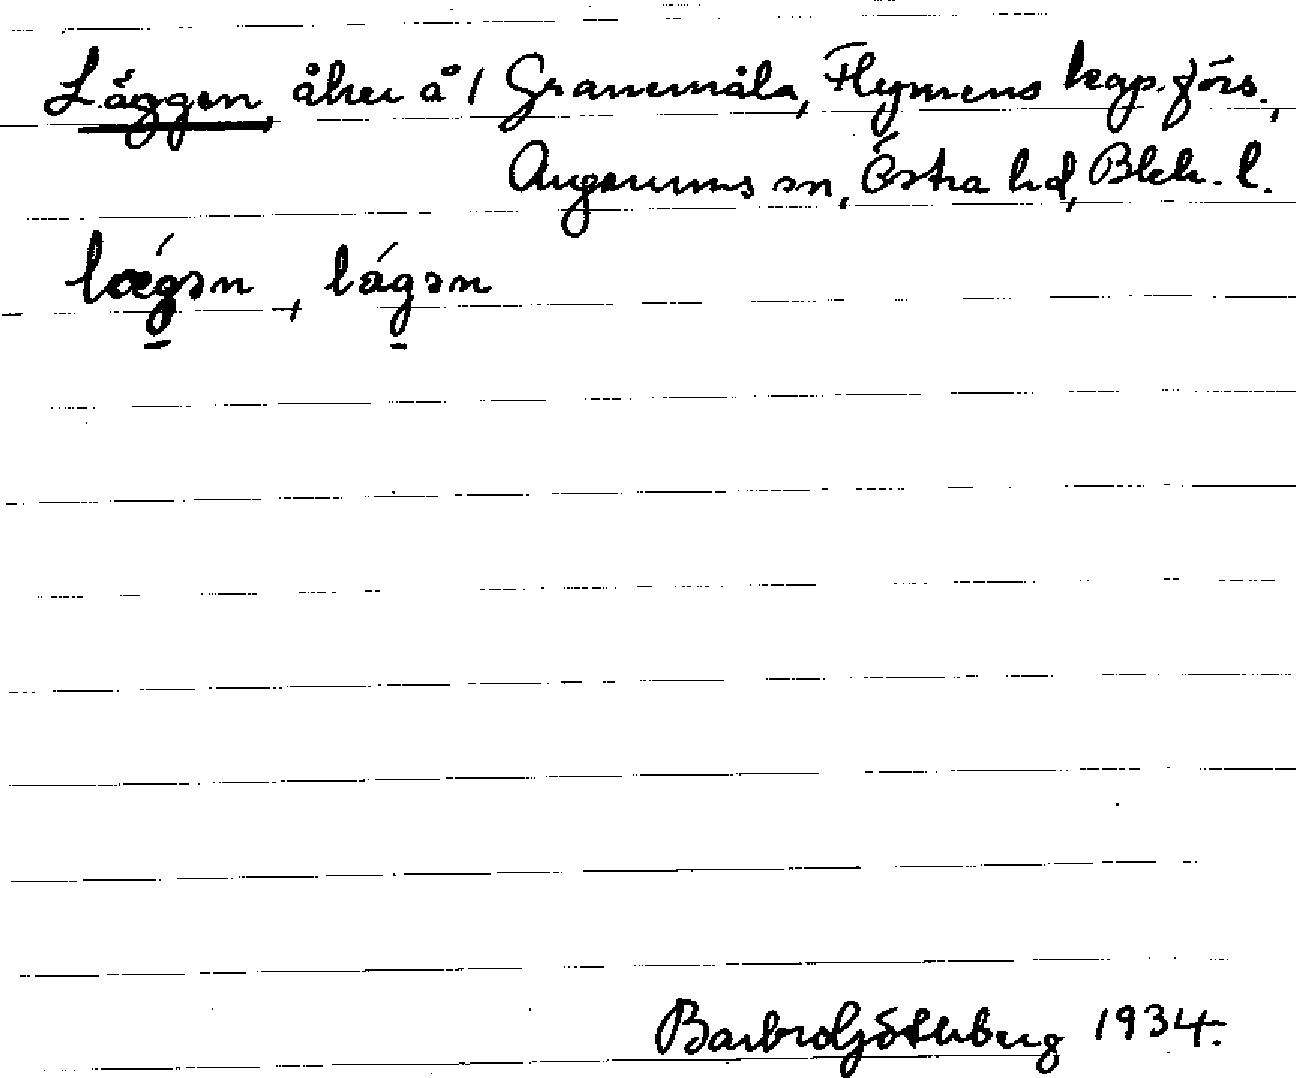 Läggen, åker å 1 Granemåla, Flymens kap. förs.,
Augerums sn, Östra hd, Blek. l.
lǽg̠ən, lág̠ən
Barbro Götberg 1934.